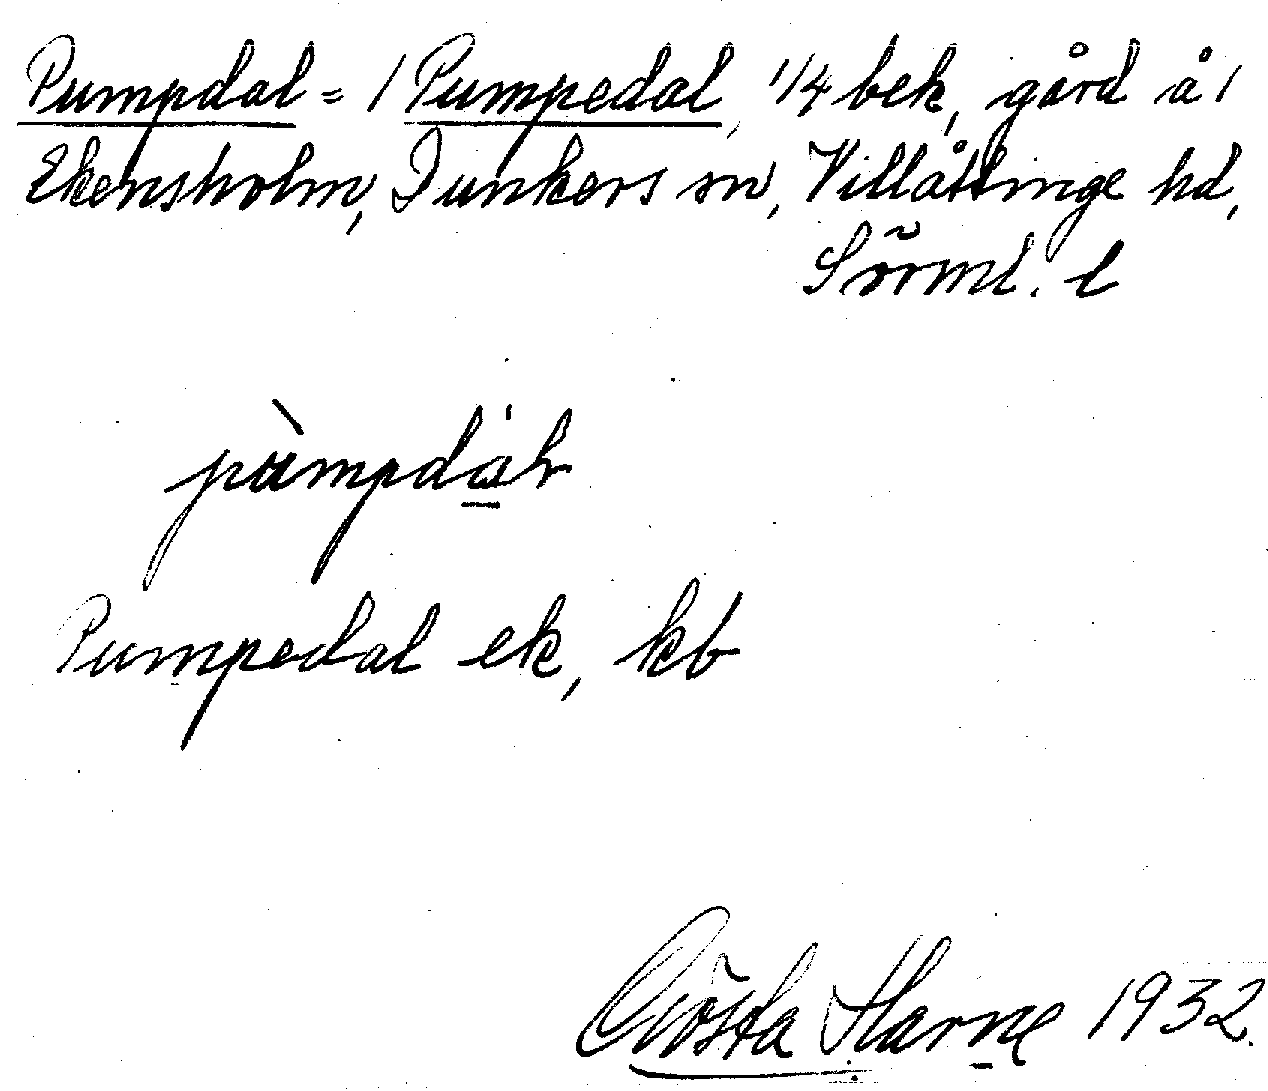 Pumpdal = / Pumpedal, 1/4 bek, gård å /
Ekensholm, Dunkers sn, Villåttinge hd,
Sörml. l
pùmpdạ̈l
Pumpedal ek, kb
Gösta Harne 1932.